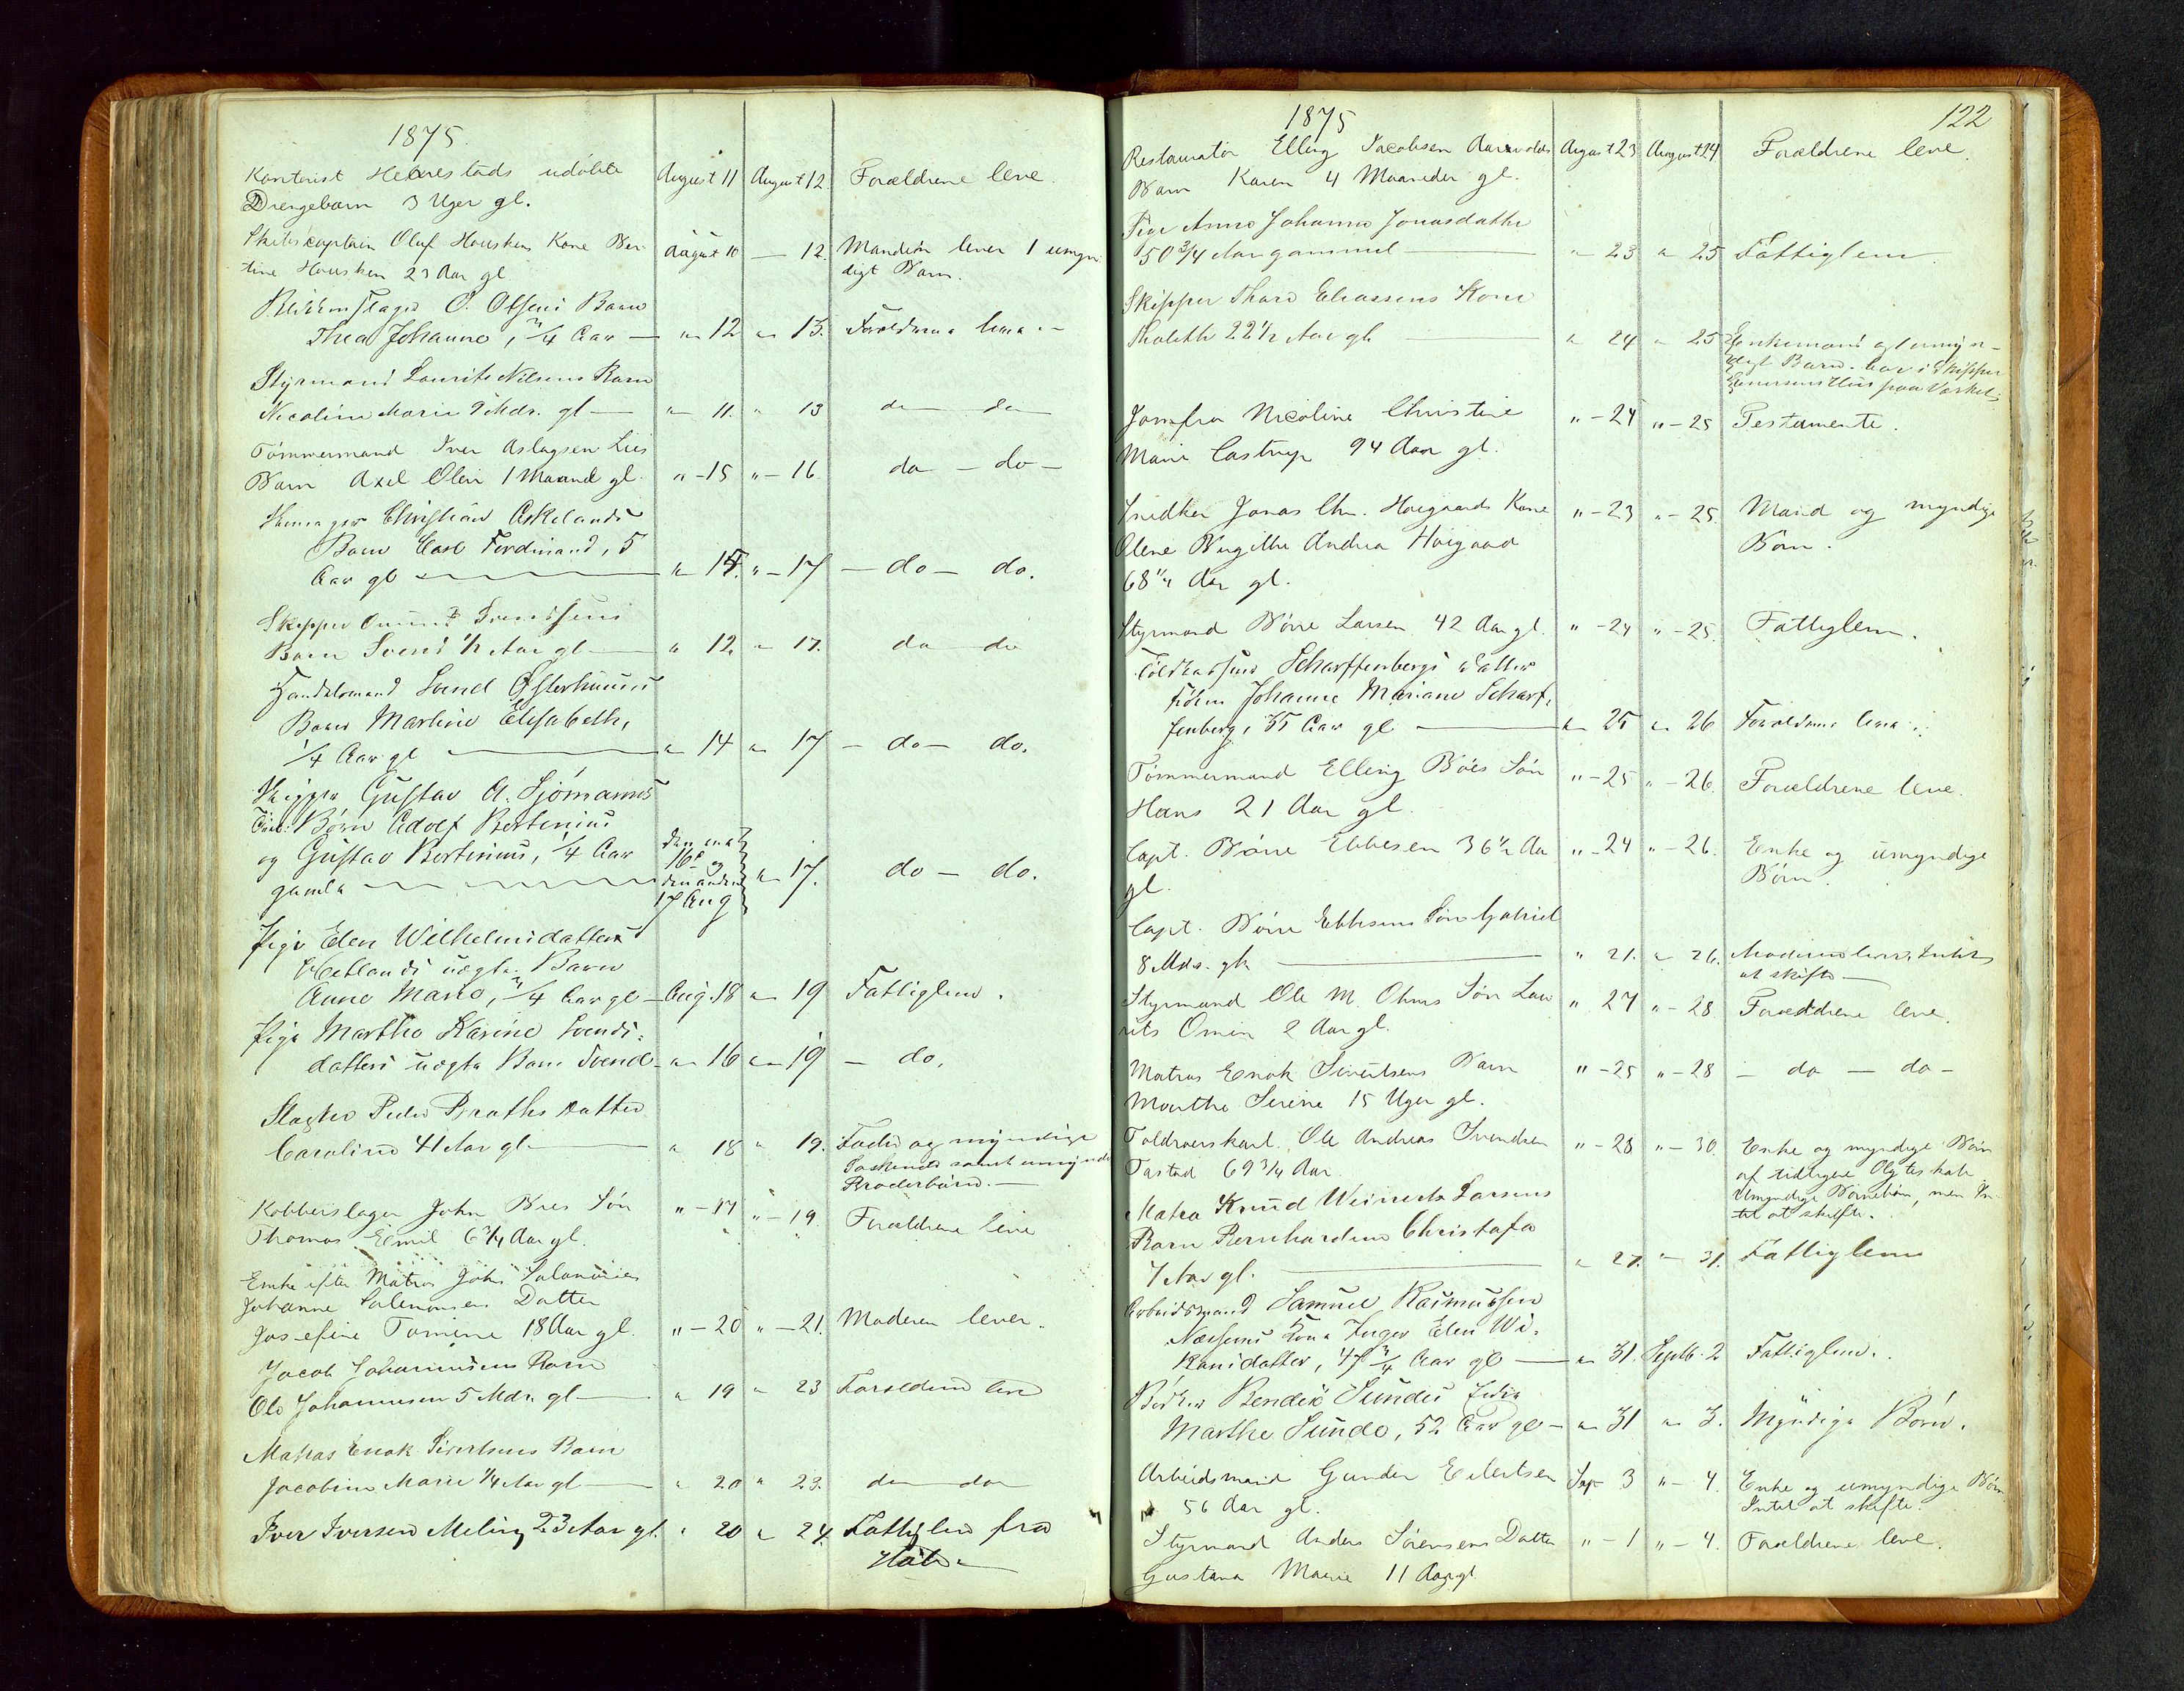 1875.
Kontorist Henrestads udöbte August 11 August 12. Forældrene leve.
Drengebarn 3 Uger gl.
Skibscaptain Oluf Houskens Kone Ber August 10 — 12. Manden lever 1 umyn
tine Housken 23 Aar gl digt Barn.
Blikkenslager O. Olsens Barn
Thea Johanne, 3/4 Aar — " 12 " 13. Forældrene leve.
Styrmand Laurits Nilsens Barn
Nicoline Marie 9 Mdr. gl — " 11. " 13 do do
Tömmermand Iver Aslagsen Lies
Barn Axel Olen 1 Maaned gl. " - 15 " - 16 do - do -
Christian Askelands
Barn Carl Ferdinand, 5
Aar gl — " 15. " - 17 - do - do.
Skipper Svendsens
Barn Svend 1/2 Aar gl — " 12. " 17. do do
Handelsmand Svend Osterhuus
Barn Martine Elisabeth,
1/4 Aar gl — " 14 " 17 - do - do.
Skipper Gustav A. Sjömanns
Tvil: Börn Adolf Bertinius
og Gustav Bertinius, 1/4 Aar den ene 16de og
gamle — den anden 17 Aug " 17. do - do.
Pige Elen Wilhelmsdatters
Hetlands uægte Barn
Anne Marie, 3/4 Aar gl — Aug. 18 " 19 Fattiglem.
Pige Marthe Karine Svends-
datters uægte Barn Svend — " 16 " 19 - do.
Slagter Peder Braths Datter
Caroline 41 Aar gl — " 18 " 19. Fader og myndige
Söskende samt umynd
Broderbörn. —
Kobberslager John Bres Sön " - 17 " - 19. Forældrene leve
Thomas Emil 6 3/4 Aar gl.
Enke efter Matros John Salomonsen
Johanne Salomonsens Datter
Josefine Tomine 18 Aar gl. " - 20 " - 21. Moderen lever.
Jacob Johannesens Barn
Ole Johannesen 5 Mdr. gl — " 19 " 23 Forældrene leve
Matros Enok Sivertsens Barn
Jacobine Marie 1/4 Aar gl — " 20 " 23. do do
Iver Iversen Meling 23 Aar gl. " 20 " 24. Fattiglem fra
1875
122
Restauratör Elling Jacobsen Aarrestads August 23 August 24 Forældrene leve.
Barn Karen 4 Maaneder gl.
Pige Anne Johanne Jonasdatter
50 3/4 Aar gammel — " 23 " 25 Fattiglem.
Skipper Thore Eliassens Kone
Tholette 22 1/2 Aar gl — " 24 " 25 Enkemand og 1 umyn-
digt Barn. bor i Skipper
Huus paa
Jomfru Nicoline Christine " - 24 " - 25 Testamente.
Marie Castrup 94 Aar gl.
Snidker Jonas Chr. Hoigaards Kone " - 23 " - 25. Mand og myndige
Olene Birgithe Andrea Hoigaard Börn.
68 1/4 Aar gl.
Styrmand Börre Larsen 42 Aar gl. " - 24 " - 25. Fattiglem.
Toldkasserer Scharffenbergs Datter
Fröken Johanne Mariane Scharf-
fenberg, 35 Aar gl — " 25 " 26 Forældrene leve.
Tömmermand Elling Böes Sön " - 25 " - 26. Forældrene leve.
Hans 21 Aar gl.
Capt. Börre Ebbesen 36 1/2 Aar " - 24 " - 26. Enke og umyndige
gl. Börn.
Capt. Börre Ebbesens Sön Gabriel
8 Mdr. gl. — " 21. " 26. Moderen lever, Intet
at skifte —
Styrmand Ole M. Olsens Sön Lau " 27 " - 28 Forældrene leve.
rits Omin 2 Aar gl.
Matros Enok Sivertsens Barn " - 25 " - 28 - do - do -
Marthe Serine 15 Uger gl.
Toldroerskarl Ole Andreas Svendsen " - 28 " - 30. Enke og myndige Börn
Tasted 69 3/4 Aar af tidligere Ægteskab
Umyndige Börnebörn, men In-
tet at skifte.
Matros Knud Weinert Larsens
Barn Bernhardine Christofa
7 Aar gl. — " 27. " 31. Fattiglem
Arbeidsmand Samuel Rasmussen
Næssens Kone Inger Elen Wi-
kansdatter, 47 3/4 Aar gl — " 31. Septb. 2 Fattiglem.
Bödker Bendix Sundes Enke
Marthe Sunde, 52 Aar gl — " 31 " 3. Myndige Börn.
Arbeidsmand Gunder Eilertsen Sep 3 " - 4. Enke og umyndige Börn
56 Aar gl. Intet at skifte.
Styrmand Anders Sörensens Datter " - 1 " - 4. Forældrene leve.
Gustava Marie 11 Aar gl